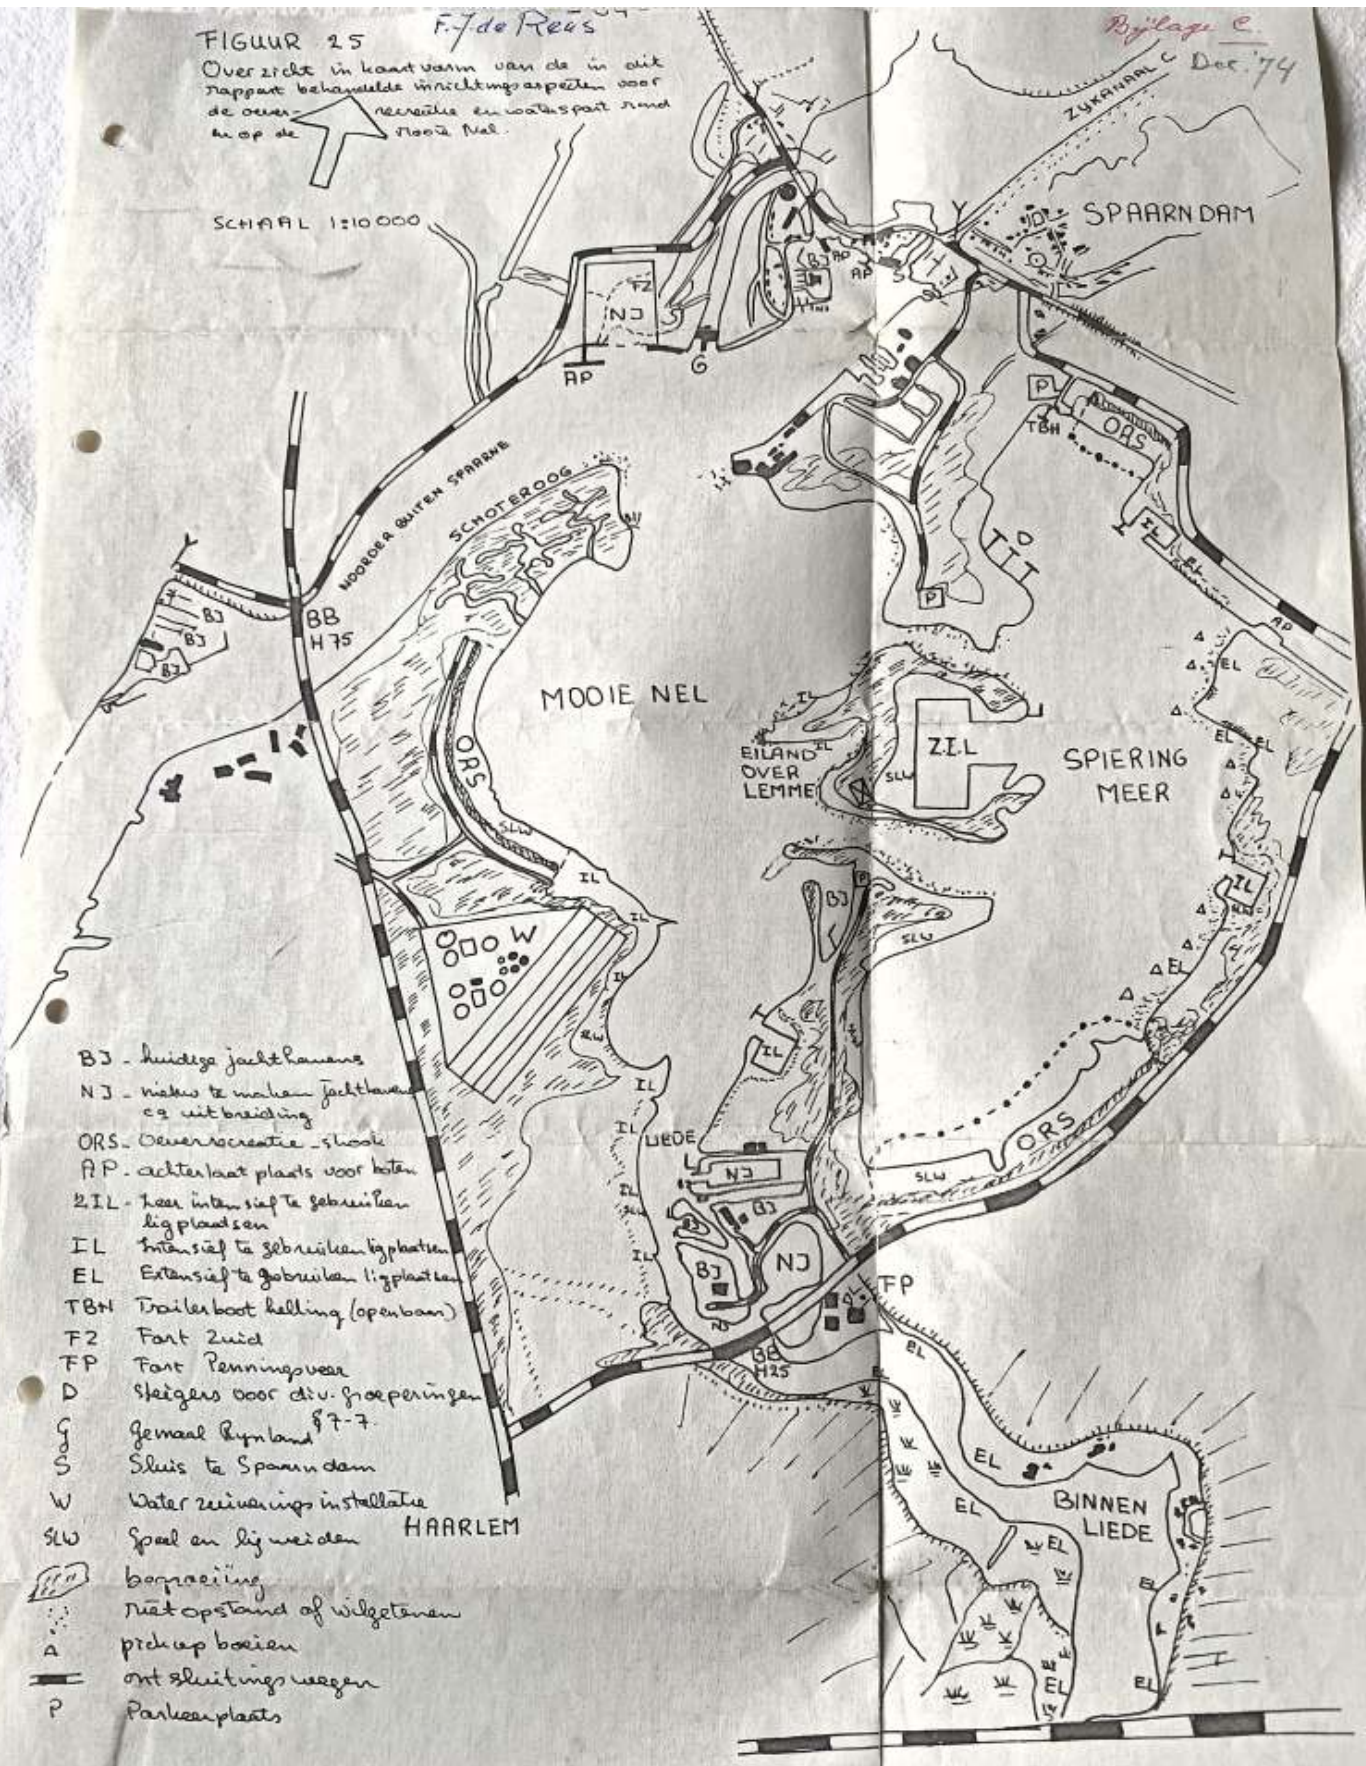 F.J. de Reus
Bijlage C.
Dec. '74
FIGUUR 25
Overzicht in kaartvorm van de in dit
rapport behandelde inrichtingsaspecten voor
de oever- recreatie en watersport rond
en op de Mooie Nel.
SCHAAL 1:10000
ZYKANAAL C
SPAARNDAM
BJ
AP
AP
S
FZ
NJ
AP
G
P
TBH
ORS
NOORDER BUITEN SPAARNE
SCHOTEROOG
IL
D
EL
P
AP
BJ
BJ
BJ
BB
H 75
EL
MOOIE NEL
IL
EILAND
OVER
LEMMER
IL
SLW
Z.I.L
SPIERING
MEER
EL
EL
ORS
SLW
IL
IL
P
BJ
SLW
IL
W
IL
SLW
EL
IL
IL
IL
LIEDE
NJ
BJ
BJ
BJ
NJ
IL
IL
ORS
SLW
FP
BB
H25
EL
EL
EL
EL
BINNEN
LIEDE
EL
EL
EL
EL
HAARLEM
BJ - huidige jachthavens
NJ - nieuw te maken jachthavens
cq uitbreiding
ORS - Oeverrecreatie - strook
AP - achterlaat plaats voor boten
ZIL - zeer intensief te gebruiken
ligplaatsen
IL Intensief te gebruiken ligplaatsen
EL Extensief te gebruiken ligplaatsen
TBH Trailerboot helling (openbaar)
FZ Fort Zuid
FP Fort Penningsveer
D Steigers voor div. groeperingen
§ 7-7.
G Gemaal Rynland
S Sluis te Spaarndam
W Water zuiverings installatie
SLW Speel en lig weiden
begroeiing
riet opstand of wilgetenen
pick up boeien
ontsluitingswegen
P Parkeerplaats